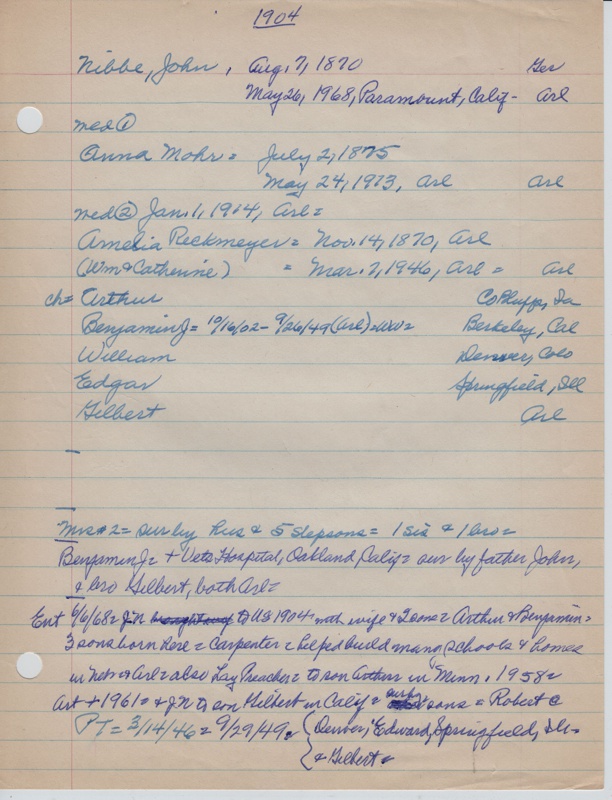 1904
Nibbe, John, Aug. 7, 1870 Ger
May 26, 1968, Paramount, Calif- Arl
med ①
Anna Mohr = July 2, 1875
May 24, 1913, Arl Arl
med ② Jan. 1, 1914, Arl =
Amelia Reckmeyer = Nov. 14, 1870, Arl
(Wm & Catherine) = Mar. 2, 1946, Arl = Arl
ch = Arthur Co Bluffs, Ia
Benjamin J = 10/16/02 - 9/26/49 (Arl) = WW = Berkeley, Cal
William Denver, Colo
Edgar Springfield, Ill
Gilbert Arl
Mrs #2 = sur by hus & 5 stepsons = 1 sis & 1 bro =
Benjamin J = + Vets Hospital, Oakland, Calif = sur by father John,
& bro Gilbert, both Arl =
Ent 6/6/68 = JN to US 1904 with wife & 2 sons = Arthur & Benjamin =
3 sons born here = Carpenter = helped build many schools & homes
in Nebr & Arl = also Lay Preacher = to son Arthur in Minn. 1958 =
Art + 1961 = & JN to son Gilbert in Calif = sur by sons = Robert C
PT = 3/14/46 = 9/29/49 = (Denver, Edward, Springfield, Ill-
& Gilbert =